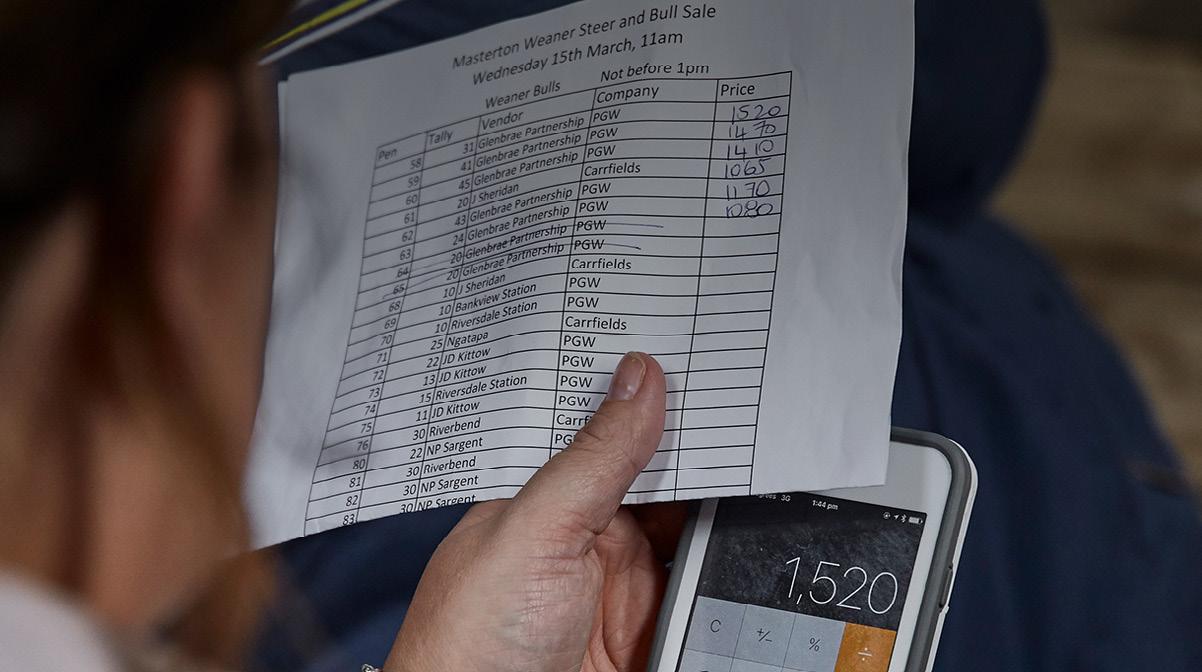 Masterton Weaner Steer and Bull Sale
Wednesday 15th March, 11am
Weaner Bulls Not before 1pm
Pen Tally Vendor Company Price
58 31 Glenbrae Partnership PGW 1520
59 41 Glenbrae Partnership PGW 1470
60 45 Glenbrae Partnership PGW 1410
61 20 J Sheridan Carrfields 1065
62 43 Glenbrae Partnership PGW 1170
63 24 Glenbrae Partnership PGW 1080
64 20 Glenbrae Partnership PGW
65 20 Glenbrae Partnership PGW
68 10 J Sheridan Carrfields
69 10 Bankview Station PGW
70 10 Riversdale Station PGW
71 25 Ngatapa Carrfields
72 22 JD Kittow PGW
73 13 JD Kittow PGW
74 15 Riversdale Station PGW
75 11 JD Kittow PGW
76 30 Riverbend Carrf
80 22 NP Sargent PG
81 30 Riverbend
82 30 NP Sargent
83 30 NP Sargent
3G 1:44 pm
1,520
C +/- % ÷